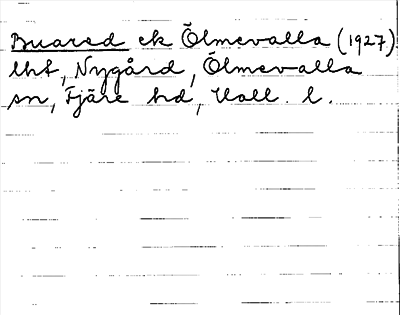 Buared ek Ölmevalla (1927)
lht, Nygård, Ölmevalla
sn, Fjäre hd, Hall. l.